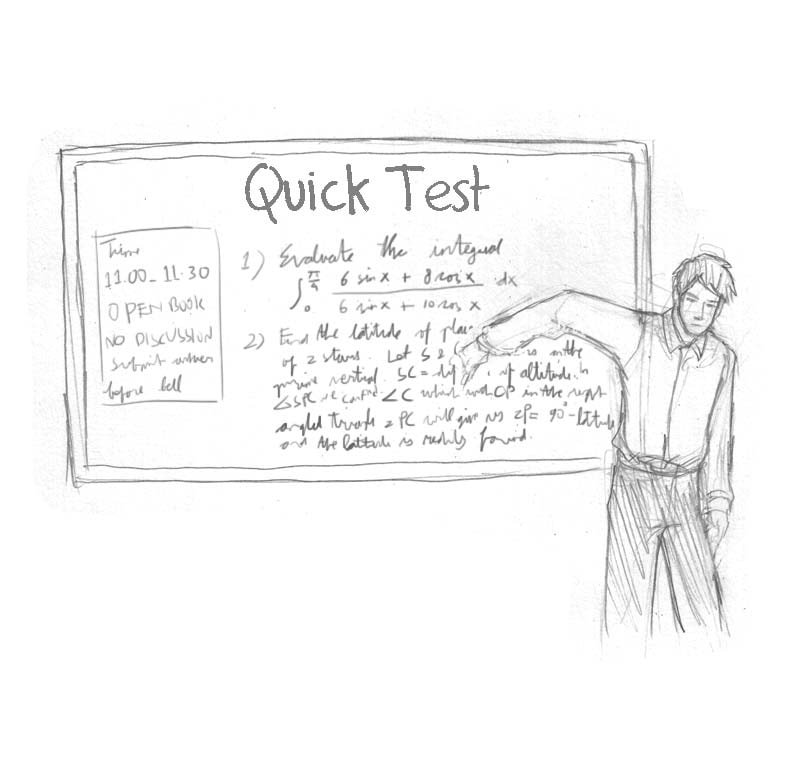 Quick Test
Time
11.00 - 11.30
OPEN BOOK
NO DISCUSSION
Submit answer
before bell
1) Evaluate the integral
∫₀^(π/4) (6 sin x + 8 cos x)/(6 sin x + 10 cos x) · dx
2) Find the latitude of
of 2 stars. Let S & is in the
prime vertical. SC = of altitude. In
∠C which with OP in the right
angled ZPC will give us ZP = 90° - latitude
and the latitude is readily found.